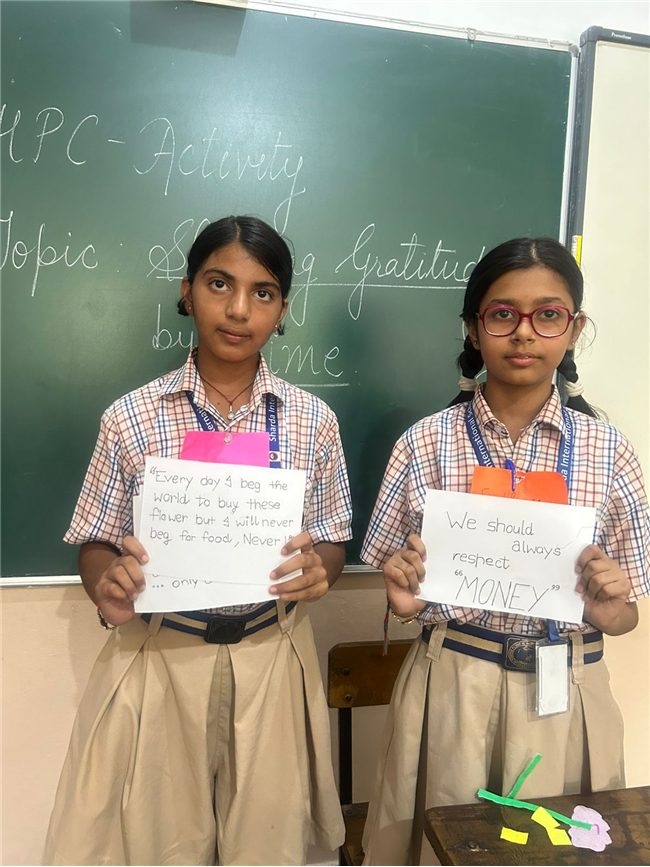 HPC - Activity
Topic : Gratitude
by
"Every day I beg the
world to buy these
flower but I will never
beg for food, Never!"
... only
We should
always
respect
"MONEY"
Sharda International